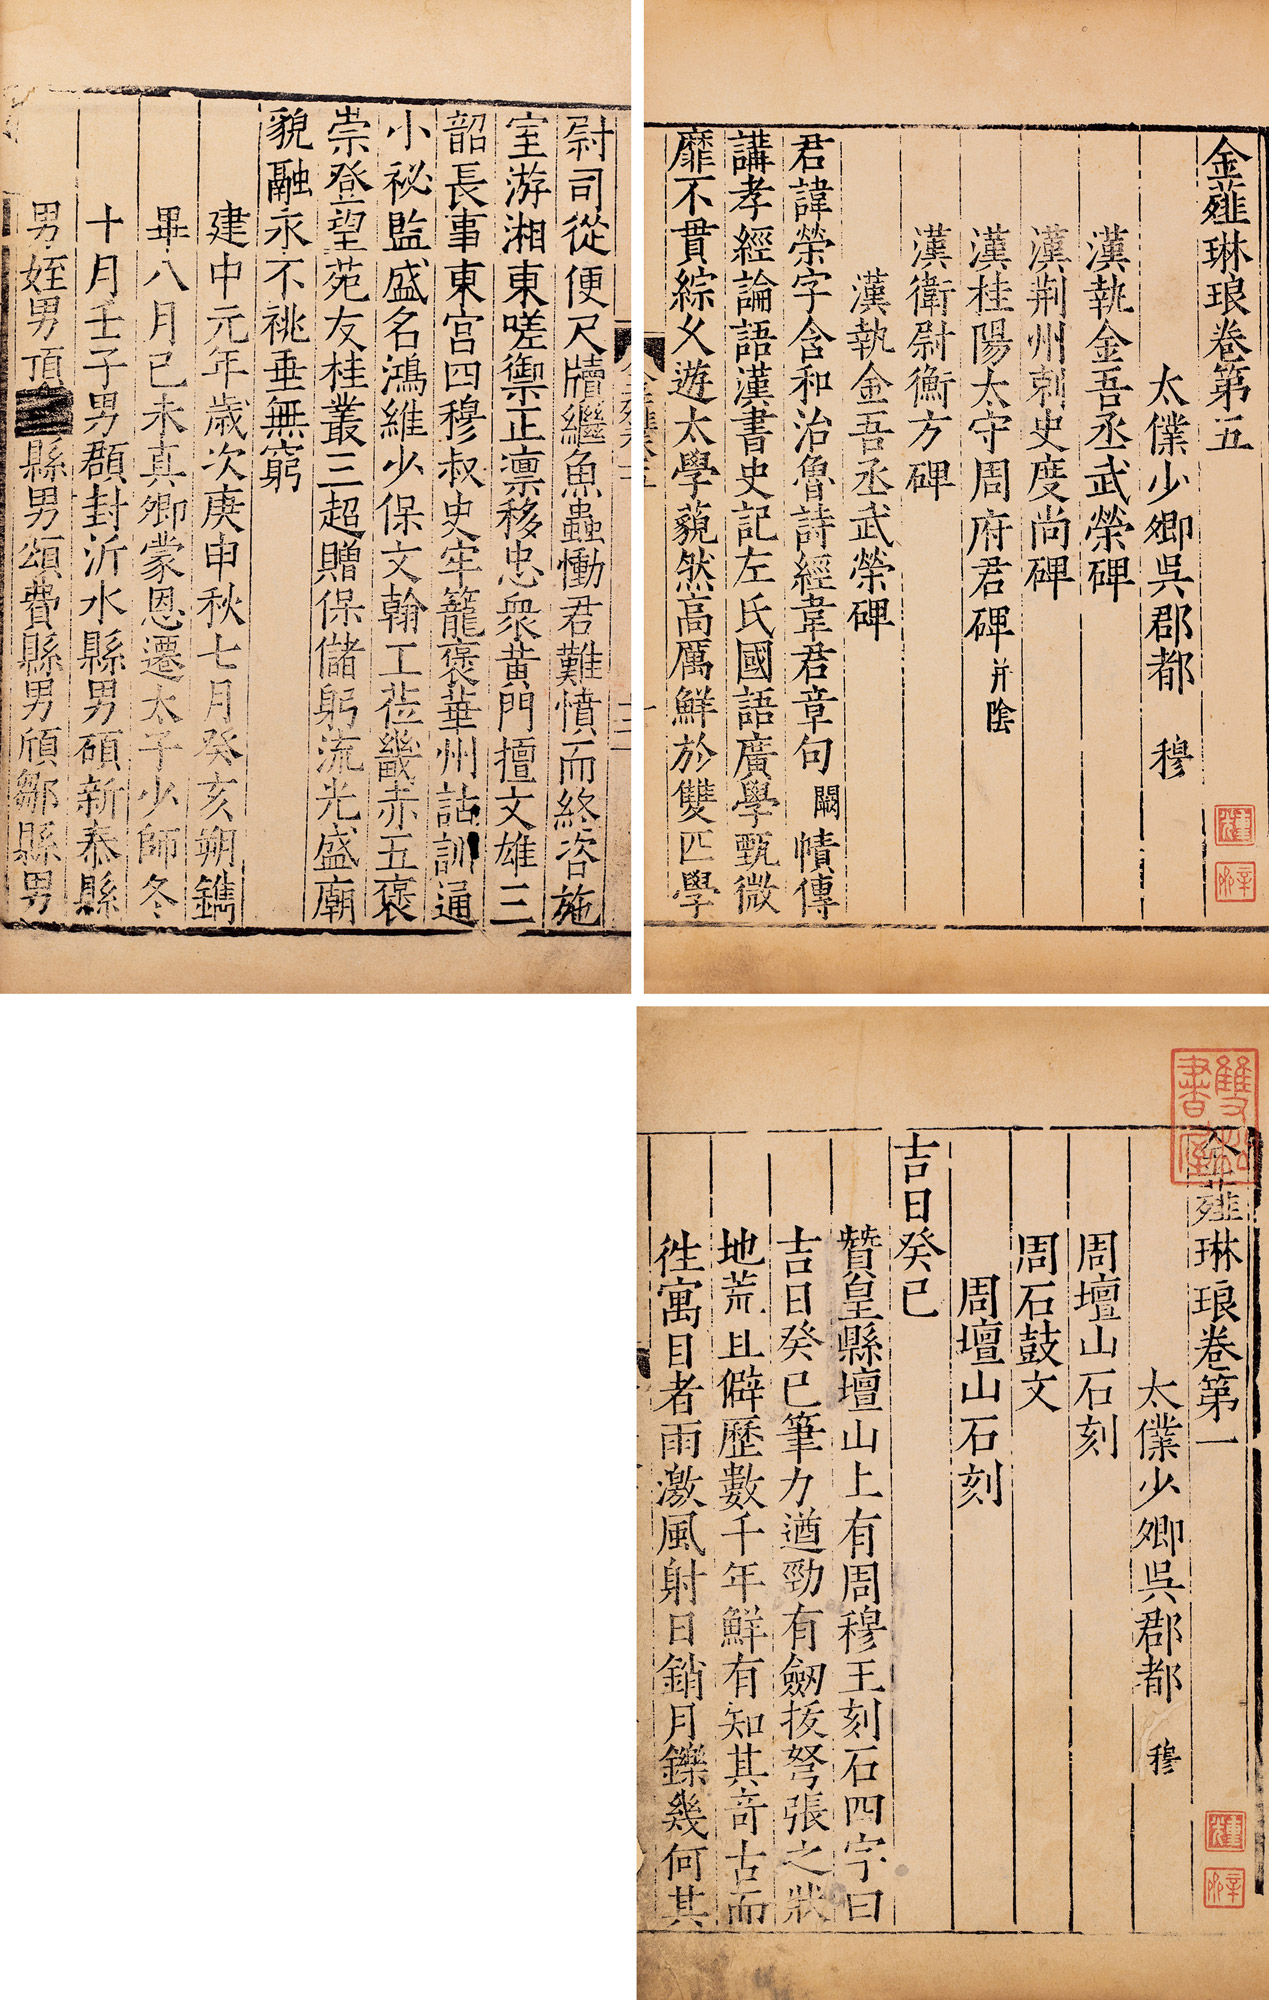 金薤琳琅卷第五
太僕少卿吳郡都 穆
漢執金吾丞武榮碑
漢荆州刺史度尚碑
漢桂陽太守周府君碑并陰
漢衛尉衡方碑
漢執金吾丞武榮碑
君諱榮字含和治魯詩經韋君章句 闕 幘傳
講孝經論語漢書史記左氏國語廣學甄微
靡不貫綜乆遊太學藐然高厲鮮於雙匹學
尉司從便尺牘繼魚蟲慟君難憤而終咨施
室游湘東嗟禦正凛移忠衆黃門擅文雄三
韶長事東宮四穆叔史牢籠褒華州詁訓通
小祕監盛名鴻維少保文翰工莅畿赤五褒
崇登望苑友桂叢三超贈保儲躬流光盛廟
貌融永不祧垂無窮
建中元年歳次庚申秋七月癸亥朔鐫
畢八月己未真卿蒙恩遷太子少師冬
十月壬子男頵封沂水縣男碩新泰縣
男姪男頂縣男頌費縣男頎鄒縣男
金薤琳琅卷第一
太僕少卿吳郡都 穆
周壇山石刻
周石鼓文
周壇山石刻
吉日癸巳
贊皇縣壇山上有周穆王刻石四字曰
吉日癸巳筆力遒勁有劒拔弩張之狀
地荒且僻歷數千年鮮有知其竒古而
徃寓目者雨激風射日銷月鑠幾何其
雙松書屋